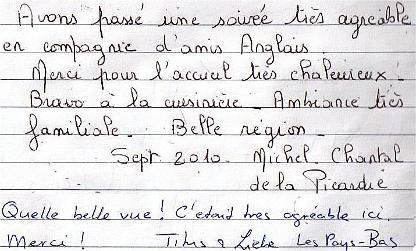 Avons passé une soirée très agréable
en compagnie d'amis Anglais.
Merci pour l'accueil très chaleureux.
Bravo à la cuisinière. Ambiance très
familiale. Belle région.
Sept 2010. Michel. Chantal
de la Picardie
Quelle belle vue! C'etait tres agréable ici.
Merci! Les Pays-Bas